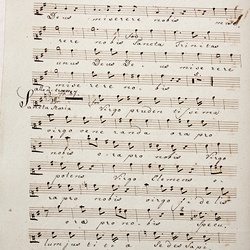 Deus miserere nobis mise
rere nobis Sancta Trinitas
unus Deus De us mise rere
mise rere no bis.
Sancta Maria Virgo prudentissima
virgo vene randa ora pro
nobis o ra pro nobis Virgo
potens Virgo Clemens o
ra pro nobis virgo fi de lis
ora pro no bis Specu
lum jus ti ti a Sedes sapi